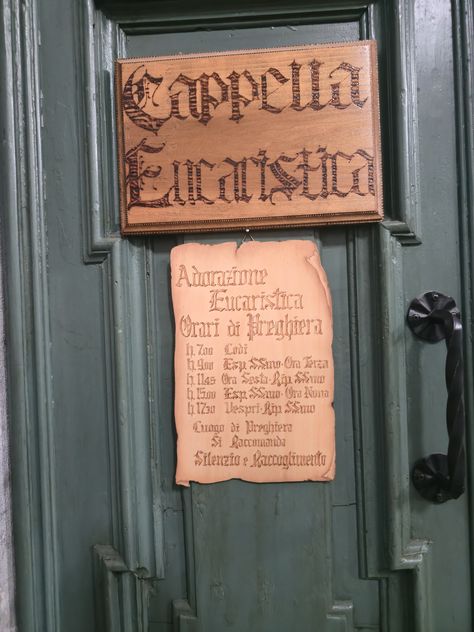 Cappella
Eucaristica
Adorazione
Eucaristica
Orari di Preghiera
h. 7.00 Lodi
h. 9.00 Esp. SS.mo - Ora Terza
h. 11.45 Ora Sesta - Rip. SS.mo
h. 15.00 Esp. SS.mo - Ora Nona
h. 17.30 Vespri - Rip. SS.mo
Luogo di Preghiera
Si Raccomanda
Silenzio e Raccoglimento